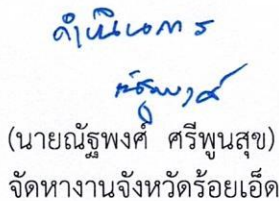 ดำเนินการ
(นายณัฐพงศ์ ศรีพูนสุข)
จัดหางานจังหวัดร้อยเอ็ด